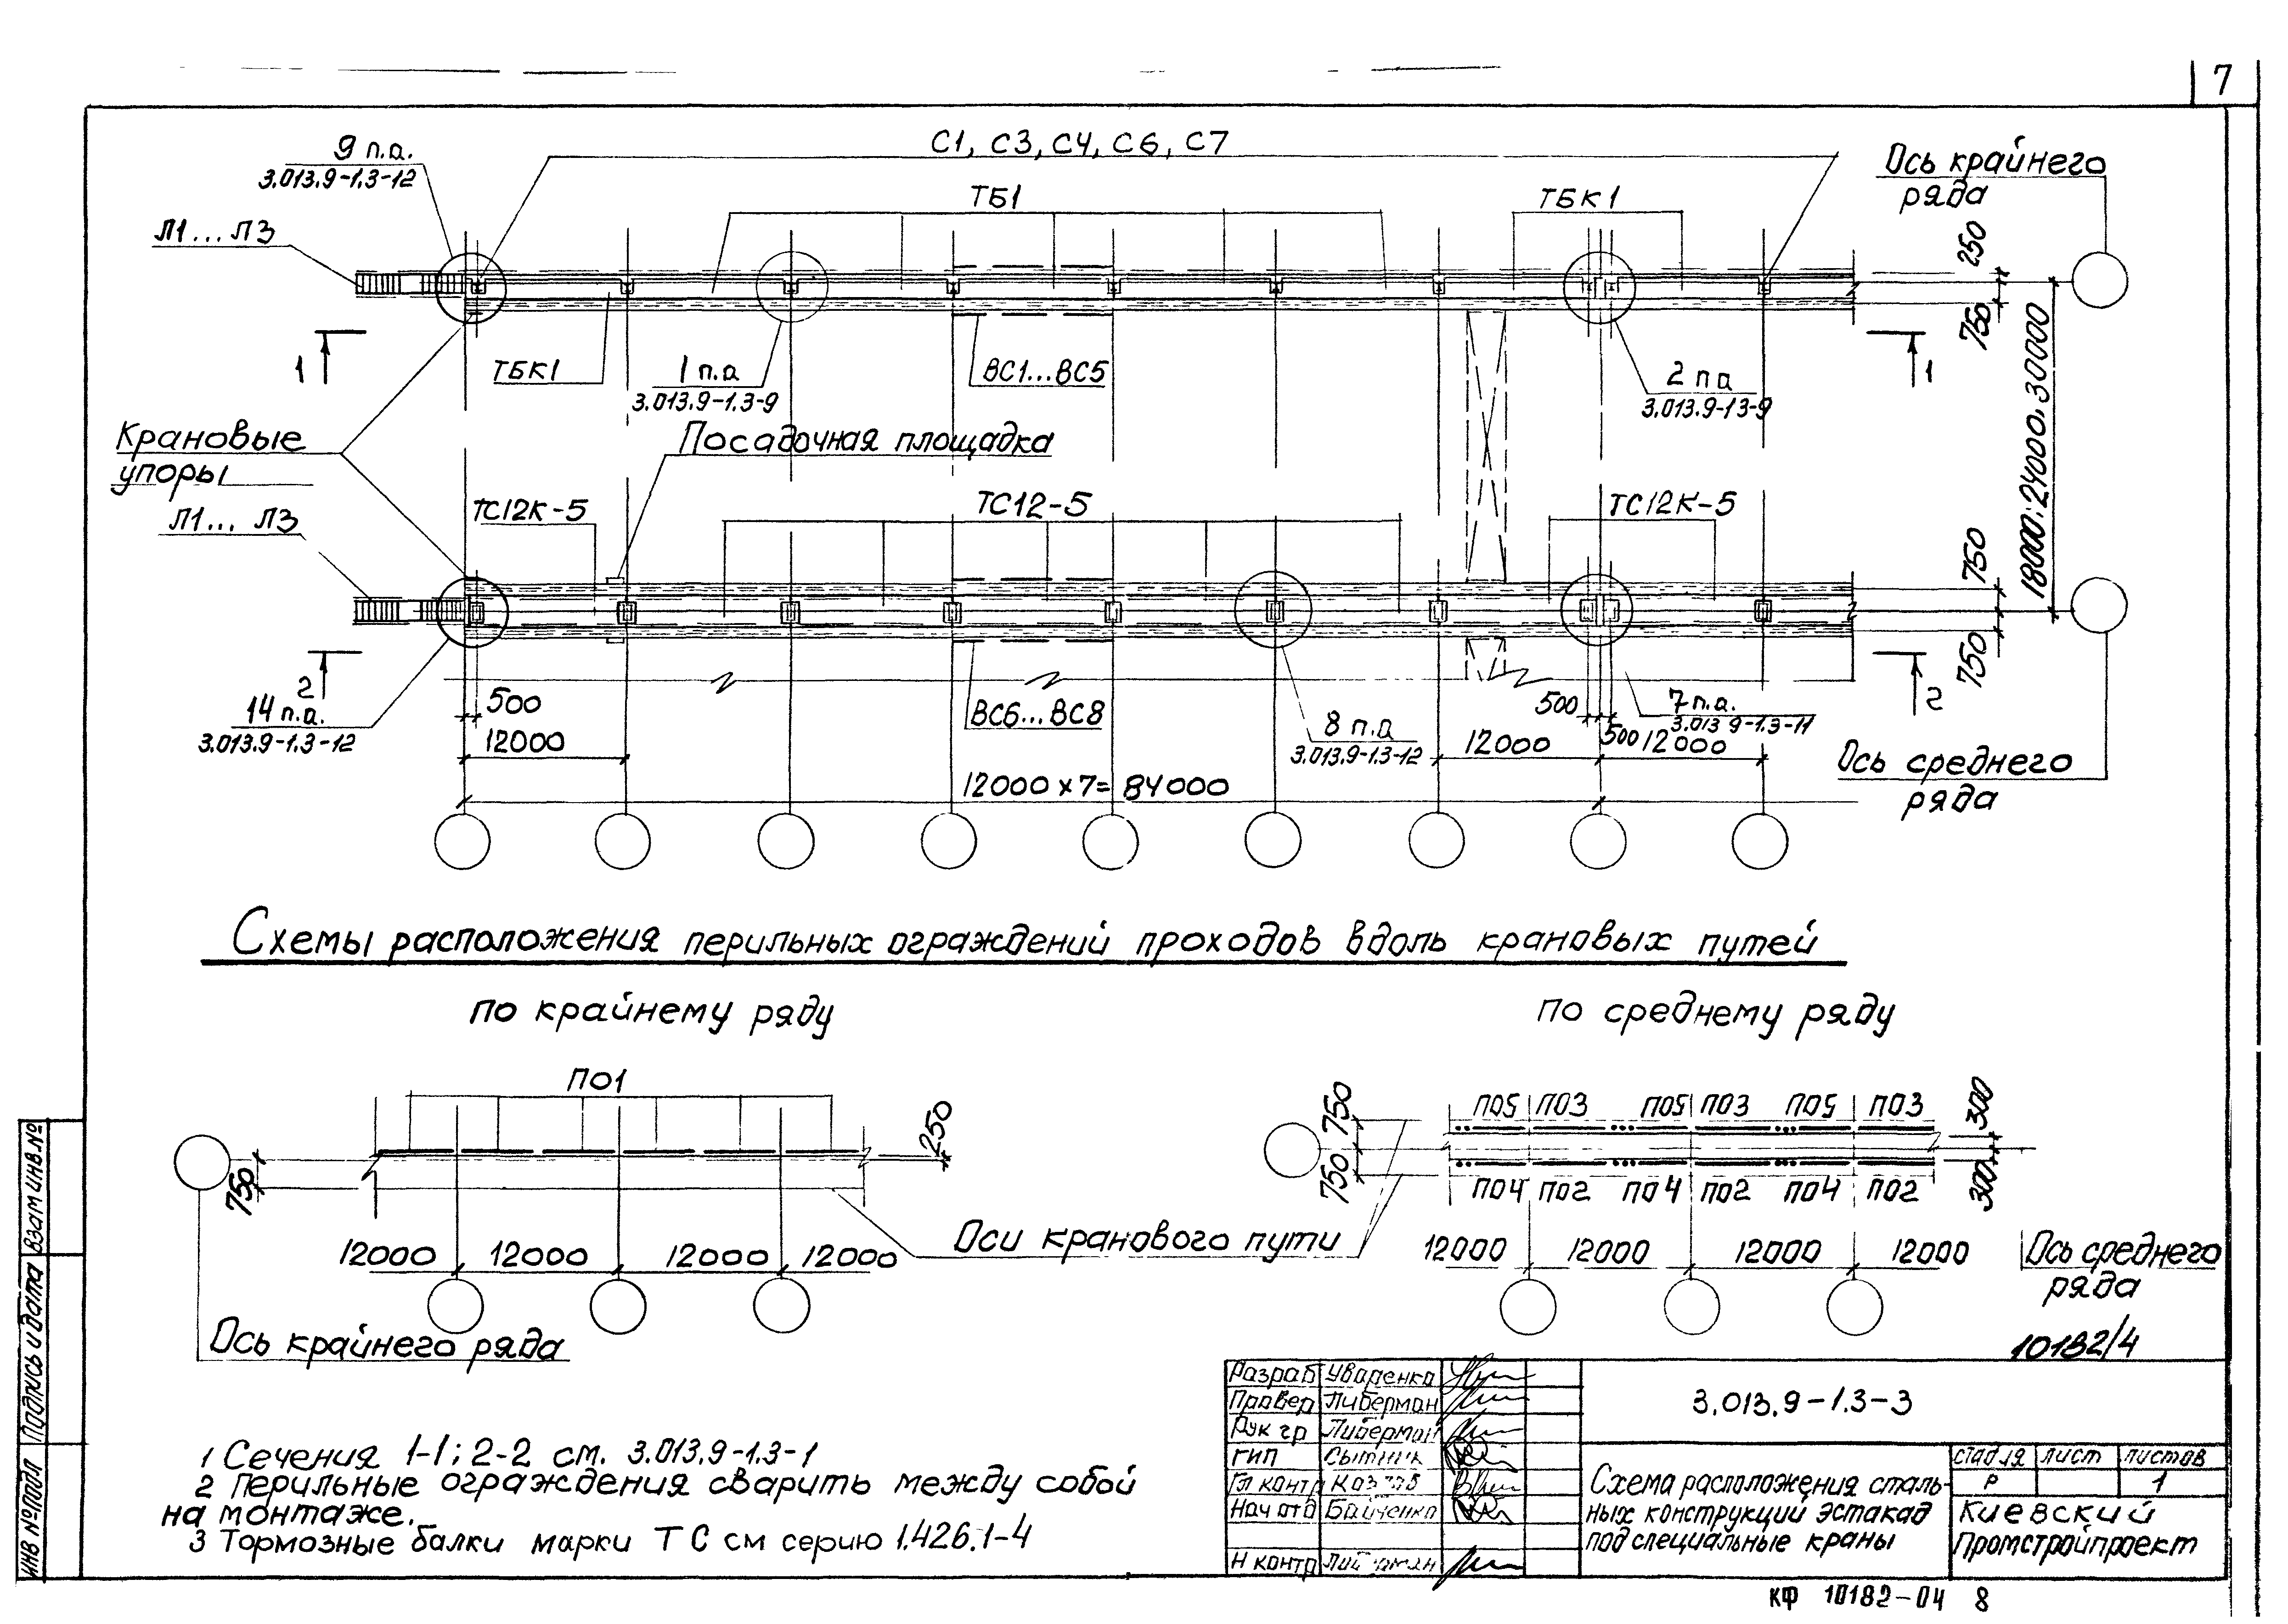 7
С1, С3, С4, С6, С7
9 п.а.
3.013.9-1.3-12
Ось крайнего
ряда
ТБ1
ТБК1
Л1...Л3
250
750
1
ТБК1
1 п.а
3.013.9-1.3-9
ВС1...ВС5
2 п а
3.013.9-13-9
1
18000; 24000, 30000
Крановые
упоры
Посадочная площадка
Л1... Л3
ТС12К-5
ТС12-5
ТС12К-5
750
750
2
14 п.а.
3.013.9-1.3-12
500
12000
ВС6...ВС8
8 п.а
3.013.9-1.3-12
500
7 п.а.
3.013 9-1.3-11
2
12000
500
12000
12000 х 7= 84000
Ось среднего
ряда
Схемы расположения перильных ограждений проходов вдоль крановых путей
по крайнему ряду
по среднему ряду
ПО1
250
750
12000 12000 12000 12000
Ось крайнего ряда
Оси кранового пути
750
750
ПО5 ПО3 ПО5 ПО3 ПО5 ПО3
ПО4 ПО2 ПО4 ПО2 ПО4 ПО2
300
300
12000 12000 12000 12000
Ось среднего
ряда
10182/4
1 Сечения 1-1; 2-2 см. 3.013.9-1.3-1
2 Перильные ограждения сварить между собой
на монтаже.
3 Тормозные балки марки ТС см серию 1.426.1-4
Разраб Уваренко
Провер Либерман
Рук гр Либерман
ГИП Сытник
Гл контр
Нач отд
Н контр
3.013.9-1.3-3
Схема расположения сталь-
ных конструкций эстакад
под специальные краны
стадия лист листов
Р 1
Киевский
Промстройпроект
КФ 10182-04 8
Инв № подл Подпись и дата Взам инв. №